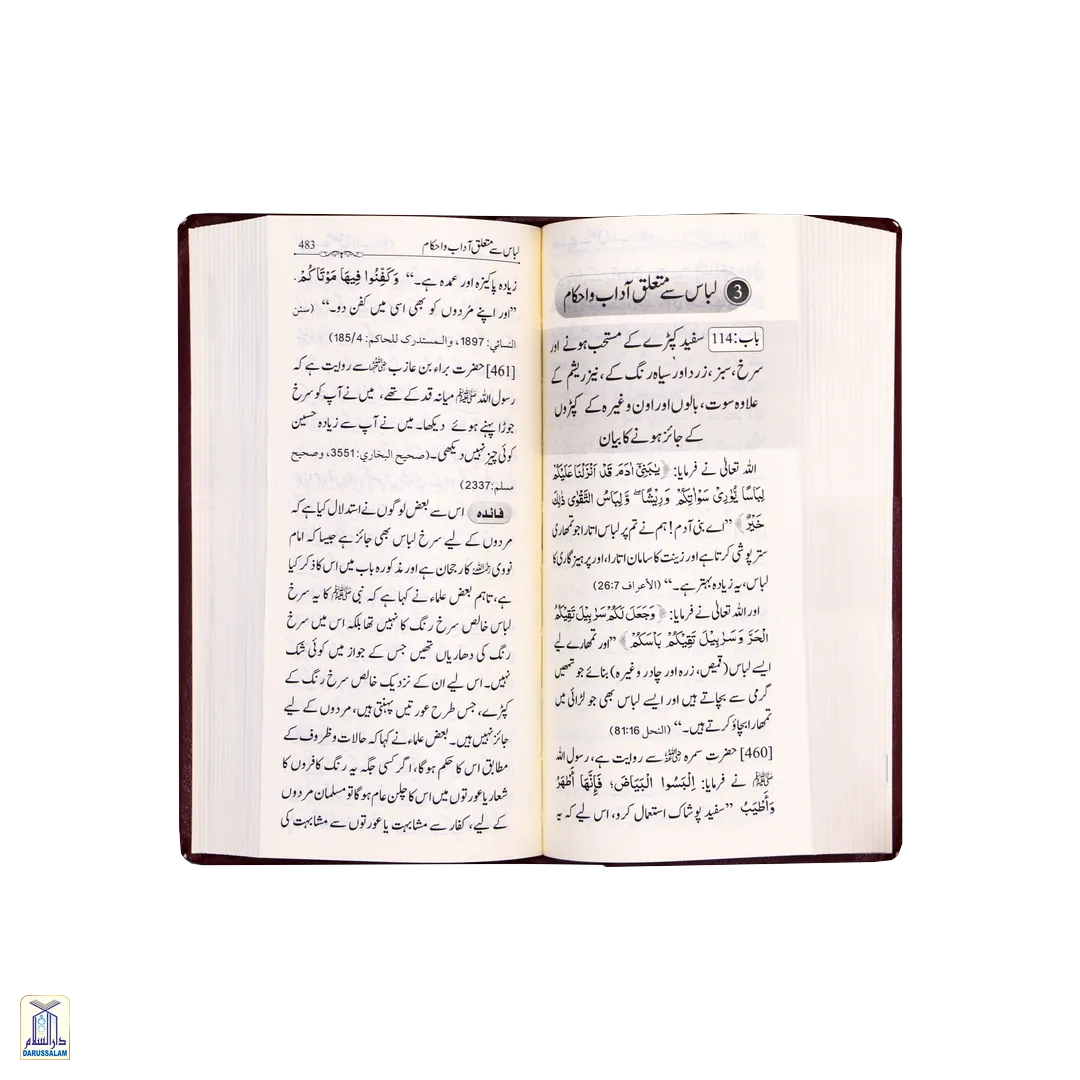 3 لباس سے متعلق آداب و احکام
باب:114 سفید کپڑے کے مستحب ہونے اور
سرخ، سبز، زرد اور سیاہ رنگ کے، نیز ریشم کے
علاوہ سوت، بالوں اور اون وغیرہ کے کپڑوں
کے جائز ہونے کا بیان
اللہ تعالیٰ نے فرمایا: ﴿یٰبَنِیْۤ اٰدَمَ قَدْ اَنْزَلْنَا عَلَیْكُمْ
لِبَاسًا یُّوَارِیْ سَوْاٰتِكُمْ وَرِیْشًا ؕ وَلِبَاسُ التَّقْوٰی ذٰلِكَ
خَیْرٌ﴾ ’’اے بنی آدم! ہم نے تم پر لباس اتارا جو تمھاری
ستر پوشی کرتا ہے اور زینت کا سامان اتارا، اور پرہیز گاری کا
لباس، یہ زیادہ بہتر ہے۔‘‘ (الأعراف 26:7)
اور اللہ تعالیٰ نے فرمایا: ﴿وَجَعَلَ لَكُمْ سَرَابِیْلَ تَقِیْكُمُ
الْحَرَّ وَسَرَابِیْلَ تَقِیْكُمْ بَاْسَكُمْ﴾ ’’اور تمھارے لیے
ایسے لباس (قمیص، زرہ اور چادر وغیرہ) بنائے جو تمھیں
گرمی سے بچاتے ہیں اور ایسے لباس بھی جو لڑائی میں
تمھارا بچاؤ کرتے ہیں۔‘‘ (النحل 81:16)
[460] حضرت سمرہ رضی اللہ عنہ سے روایت ہے، رسول اللہ
ﷺ نے فرمایا: اِلْبَسُوا الْبَيَاضَ؛ فَإِنَّهَا أَطْهَرُ
وَأَطْيَبُ ’’سفید پوشاک استعمال کرو، اس لیے کہ یہ
لباس سے متعلق آداب و احکام 483
زیادہ پاکیزہ اور عمدہ ہے۔‘‘ وَكَفِّنُوا فِيهَا مَوْتَاكُمْ.
’’اور اپنے مُردوں کو بھی اسی میں کفن دو۔‘‘ (سنن
النسائي: 1897، والمستدرك للحاكم: 185/4)
[461] حضرت براء بن عازب رضی اللہ عنہ سے روایت ہے کہ
رسول اللہ ﷺ میانہ قد کے تھے، میں نے آپ کو سرخ
جوڑا پہنے ہوئے دیکھا۔ میں نے آپ سے زیادہ حسین
کوئی چیز نہیں دیکھی۔ (صحيح البخاري: 3551، وصحيح
مسلم: 2337)
فائدہ اس سے بعض لوگوں نے استدلال کیا ہے کہ
مردوں کے لیے سرخ لباس بھی جائز ہے جیسا کہ امام
نووی رحمہ اللہ کا رجحان ہے اور مذکورہ باب میں اس کا ذکر کیا
ہے، تاہم بعض علماء نے کہا ہے کہ نبی ﷺ کا یہ سرخ
لباس خالص سرخ رنگ کا نہیں تھا بلکہ اس میں سرخ
رنگ کی دھاریاں تھیں جس کے جواز میں کوئی شک
نہیں۔ اس لیے ان کے نزدیک خالص سرخ رنگ کے
کپڑے، جس طرح عورتیں پہنتی ہیں، مردوں کے لیے
جائز نہیں ہیں۔ بعض علماء نے کہا کہ حالات و ظروف کے
مطابق اس کا حکم ہوگا، اگر کسی جگہ یہ رنگ کافروں کا
شعار یا عورتوں میں اس کا چلن عام ہوگا تو مسلمان مردوں
کے لیے، کفار سے مشابہت یا عورتوں سے مشابہت کی
دارالسلام
DARUSSALAM